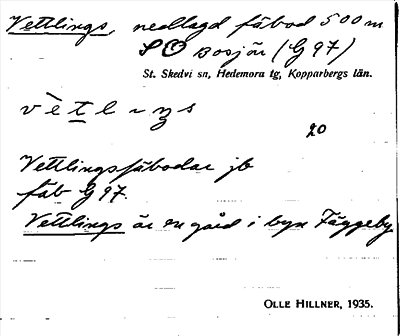 Vettlings, nedlagd fäbod 500 m
SO Bosjön (G 97)
St. Skedvi sn, Hedemora tg, Kopparbergs län.
20
Vettlingsfäbodar jb
fäb G 97.
Vettlings är en gård i byn Fäggeby
OLLE HILLNER, 1935.